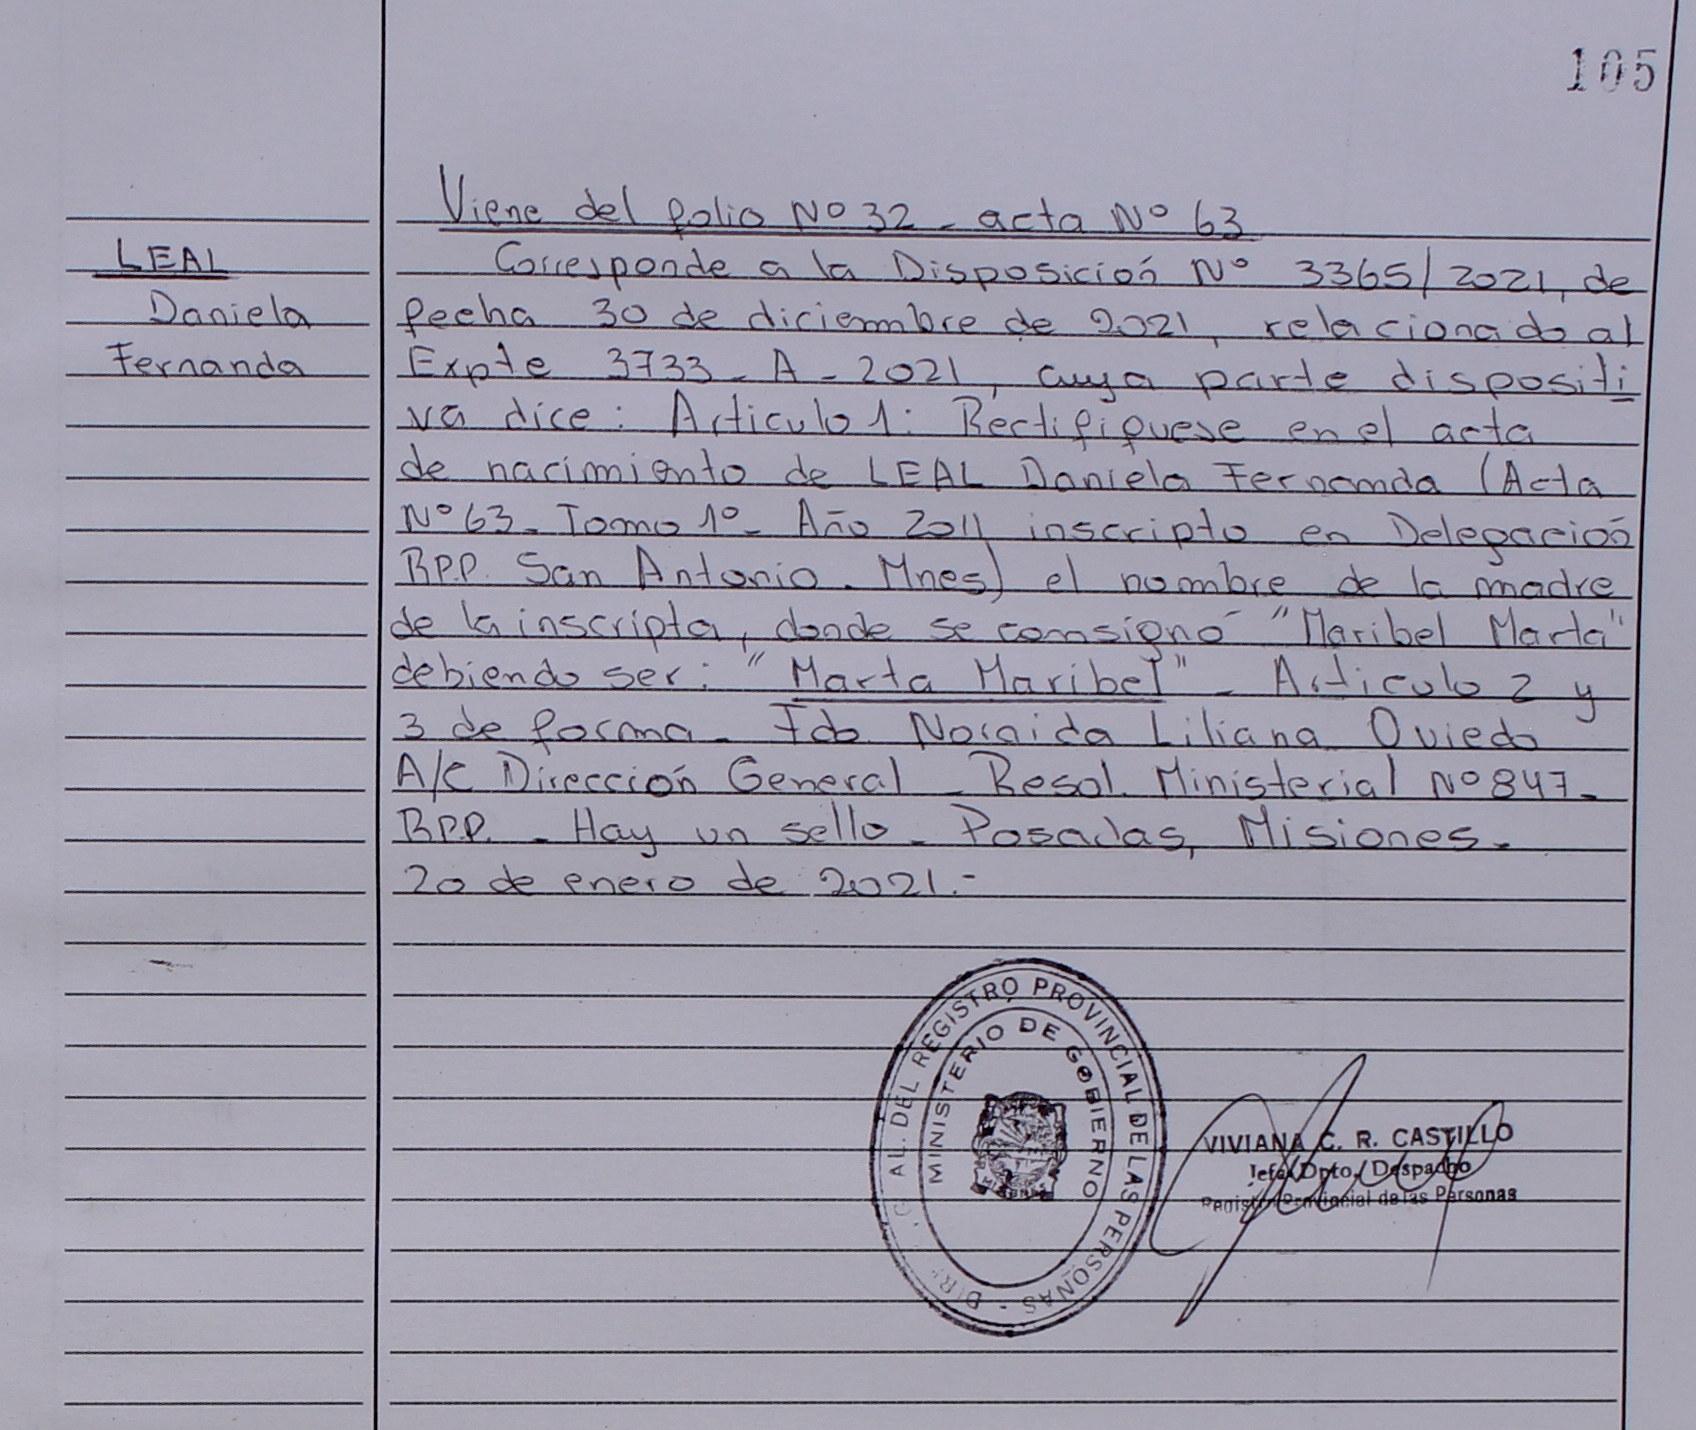 105
Viene del folio Nº 32 - acta Nº 63
LEAL
Daniela
Fernanda
Corresponde a la Disposición Nº 3365/2021, de
fecha 30 de diciembre de 2021, relacionado al
Expte 3733 - A - 2021, cuya parte dispositi
va dice: Articulo 1: Rectifiquese en el acta
de nacimiento de LEAL Daniela Fernanda (Acta
Nº 63 - Tomo 1º - Año 2011 inscripto en Delegación
RPP. San Antonio. Mnes) el nombre de la madre
de la inscripta, donde se consignó "Maribel Marta"
debiendo ser: "Marta Maribel" - Articulo 2 y
3 de forma - Fdo Noraida Liliana Oviedo
A/C Dirección General - Resol. Ministerial Nº 847-
RPP. - Hay un sello - Posadas, Misiones.
20 de enero de 2021.-
AL. DEL REGISTRO PROVINCIAL DE LAS PERSONAS -
MINISTERIO DE GOBIERNO
MISIONES
VIVIANA C. R. CASTILLO
Jefe Dpto. Despacho
Registro Provincial de las Personas